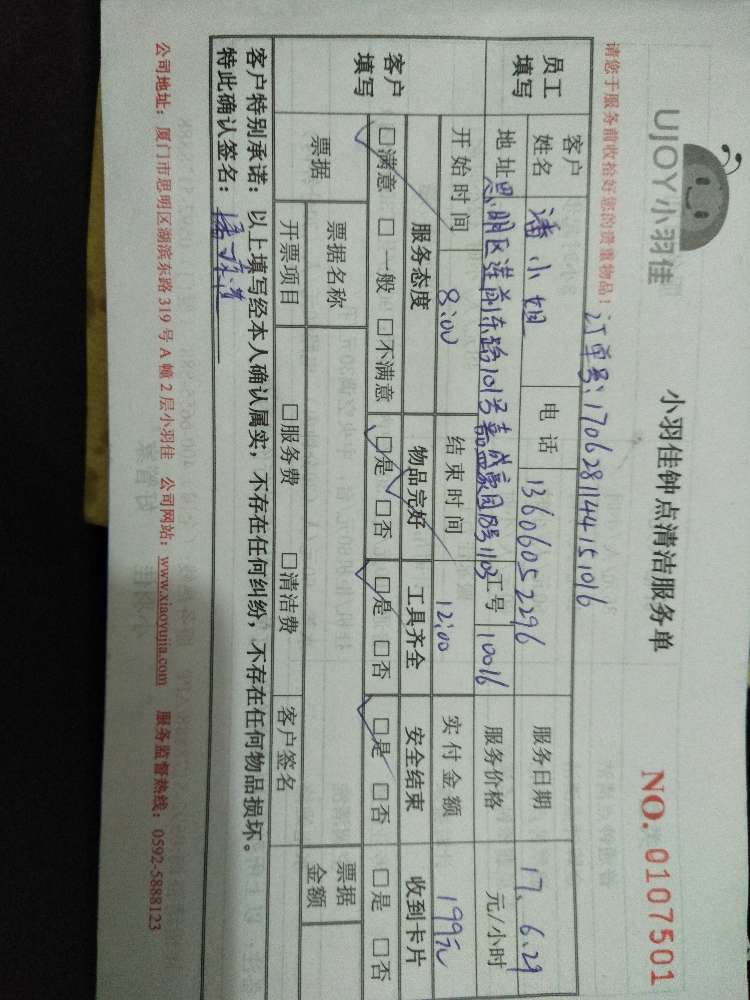 UJOY小羽佳
小羽佳钟点清洁服务单
NO. 0107501
请您于服务前收拾好您的贵重物品！
订单号: 1706281144151016
员工填写
客户姓名 潘小姐 电话 13606052296 服务日期 17. 6. 29
地址 思明区莲前东路101号嘉盛豪园8号1103 工号 10016 服务价格 元/小时
开始时间 8:00 结束时间 12:00 实付金额 199元
客户填写
服务态度 物品完好 工具齐全 安全结束 收到卡片
□满意 □一般 □不满意 □是 □否 □是 □否 □是 □否 □是 □否
票据 票据名称 票据金额
开票项目 □服务费 □清洁费 客户签名
客户特别承诺：以上填写经本人确认属实，不存在任何纠纷，不存在任何物品损坏。
特此确认签名：
公司地址：厦门市思明区湖滨东路 319 号 A 幢 2 层小羽佳 公司网站：www.xiaoyujia.com 服务监督热线：0592-5888123